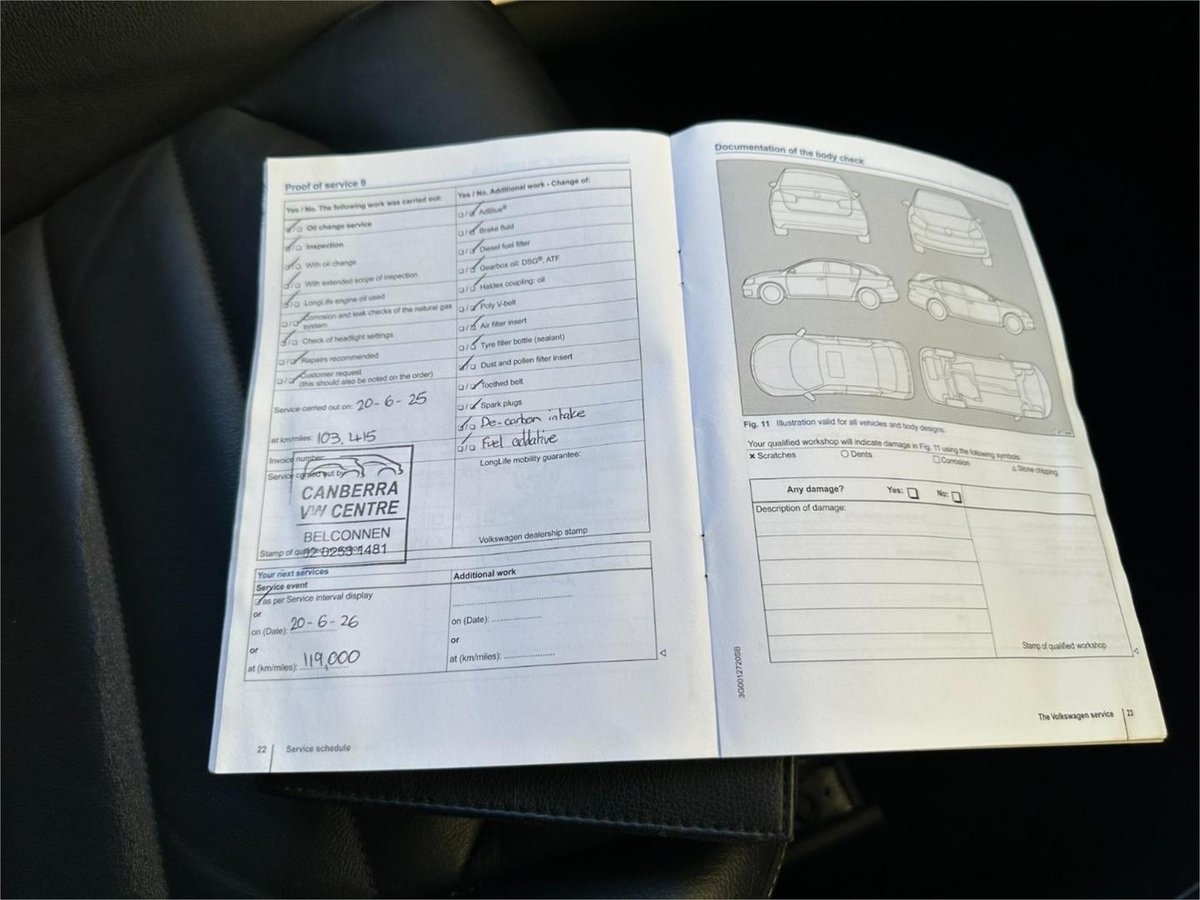 Proof of service 9
Yes / No. The following work was carried out:
Oil change service
Inspection
With oil change
With extended scope of inspection
LongLife engine oil used
Corrosion and leak checks of the natural gas
system
Check of headlight settings
Repairs recommended
Customer request
(this should also be noted on the order)
Service carried out on: 20-6-25
at km/miles: 103,415
Invoice number:
Service carried out by:
CANBERRA
VW CENTRE
BELCONNEN
02 6253 1481
Stamp of qualified
Yes / No. Additional work - Change of:
AdBlue®
Brake fluid
Diesel fuel filter
Gearbox oil: DSG®, ATF
Haldex coupling: oil
Poly V-belt
Air filter insert
Tyre filler bottle (sealant)
Dust and pollen filter insert
Toothed belt
Spark plugs
De-carbon intake
Fuel additive
LongLife mobility guarantee:
Volkswagen dealership stamp
Your next services
Service event
as per Service interval display
or
on (Date): 20-6-26
or
at (km/miles): 119,000
Additional work
on (Date):
or
at (km/miles):
22 Service schedule
Documentation of the body check
Fig. 11 Illustration valid for all vehicles and body designs.
Your qualified workshop will indicate damage in Fig. 11 using the following symbols:
× Scratches
○ Dents
□ Corrosion
△ Stone chipping
Any damage? Yes: No:
Description of damage:
Stamp of qualified workshop
3G0012720SB
The Volkswagen service 23